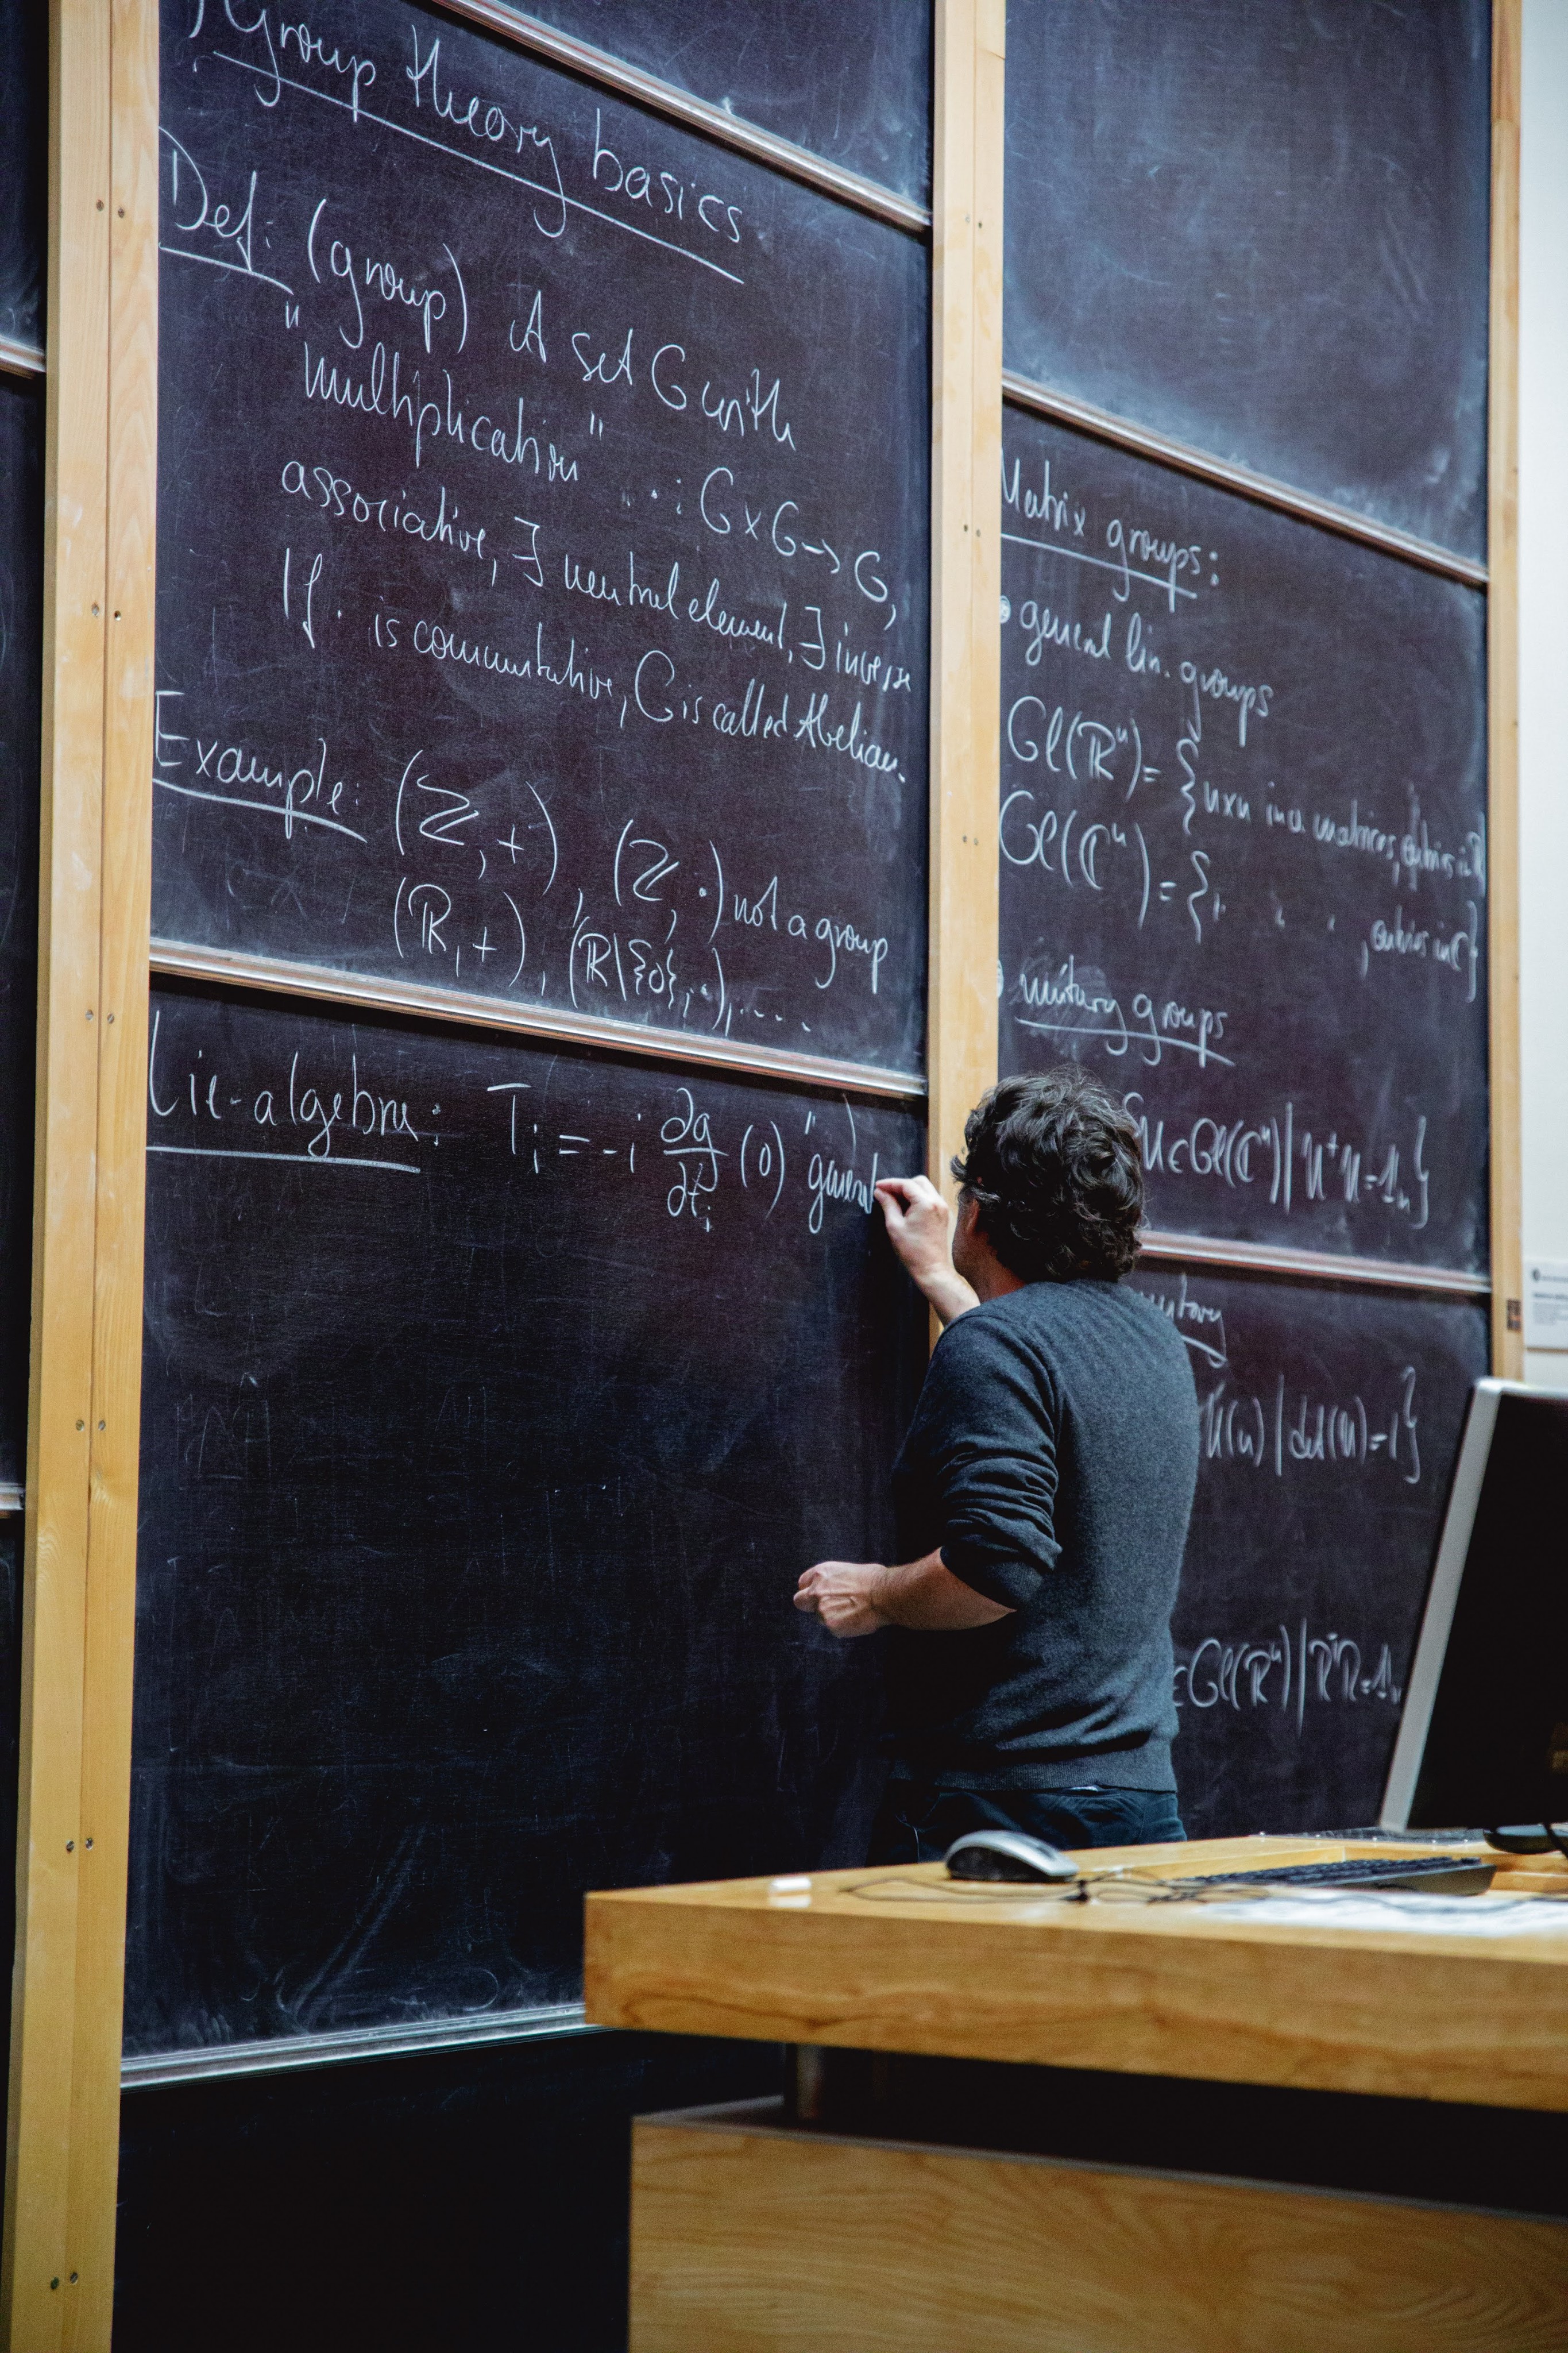 ) Group theory basics
Def: (group) A set G with
"multiplication" · : G×G→G,
associative, ∃ neutral element, ∃ inverse
If · is commutative, G is called Abelian.
Example: (ℤ,+), (ℤ,·) not a group
(ℝ,+), (ℝ\{0},·), ....
Lie-algebra: Tᵢ = -i ∂g/∂tᵢ (0) "generat
Matrix groups:
• general lin. groups
Gl(ℝⁿ) = {n×n inv. matrices, entries in ℝ
Gl(ℂⁿ) = {" " " , entries in ℂ}
• unitary groups
U∈Gl(ℂⁿ) | U⁺U = 1ₙ}
U(n) | det(U) = 1}
∈Gl(ℝⁿ) | RᵀR = 1ₙ